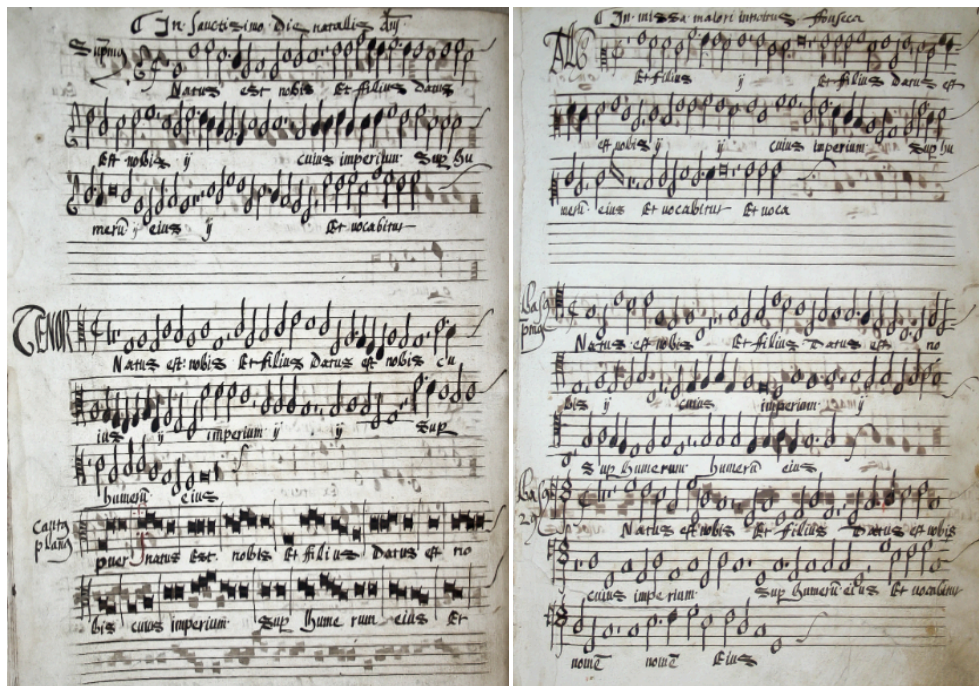 In Sanctissimo Die natallis
Natus est nobis Et filius Datus
Est nobis ij cuius imperium Sup hu
merũ ij eius ij Et vocabitur
TENOR
Natus est nobis Et filius Datus est nobis cu
ius ij imperium ij ij Sup
humerũ eius
puer natus Est nobis Et filius Datus est no
bis cuius imperium Sup hume rum eius Et
In missa maiori introitus Fonseca
Et filius ij Et filius Datus est
est nobis ij ij cuius imperium Sup hu
merũ eius Et vocabitur Et voca
Natus est nobis Et filius Datus est no
bis ij cuius imperium ij
Sup humerum humerũ eius
Natus est nobis Et filius Datus est nobis
cuius imperium Sup humerũ eius Et vocabitur
nomẽ nomẽ Eius